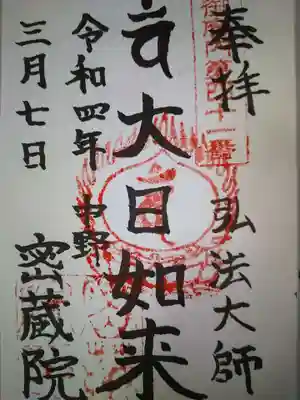 奉拝
弘法大師
大日如来
令和四年
中野
三月七日
密蔵院